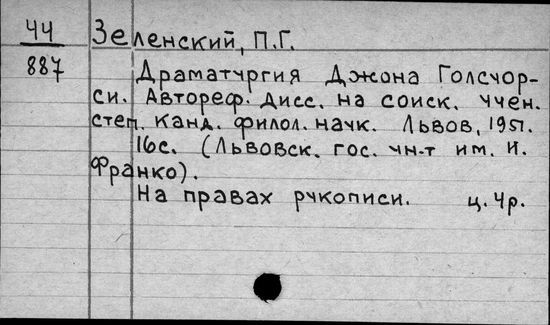 44
887
Зеленский, П.Г.
Драматургия Джона Голсуор-
си. Автореф. дисс. на соиск. учен.
степ. канд. филол. наук. Львов, 1951.
16с. (Львовск. гос. ун-т им. И.
Франко).
На правах рукописи. ц. 4р.